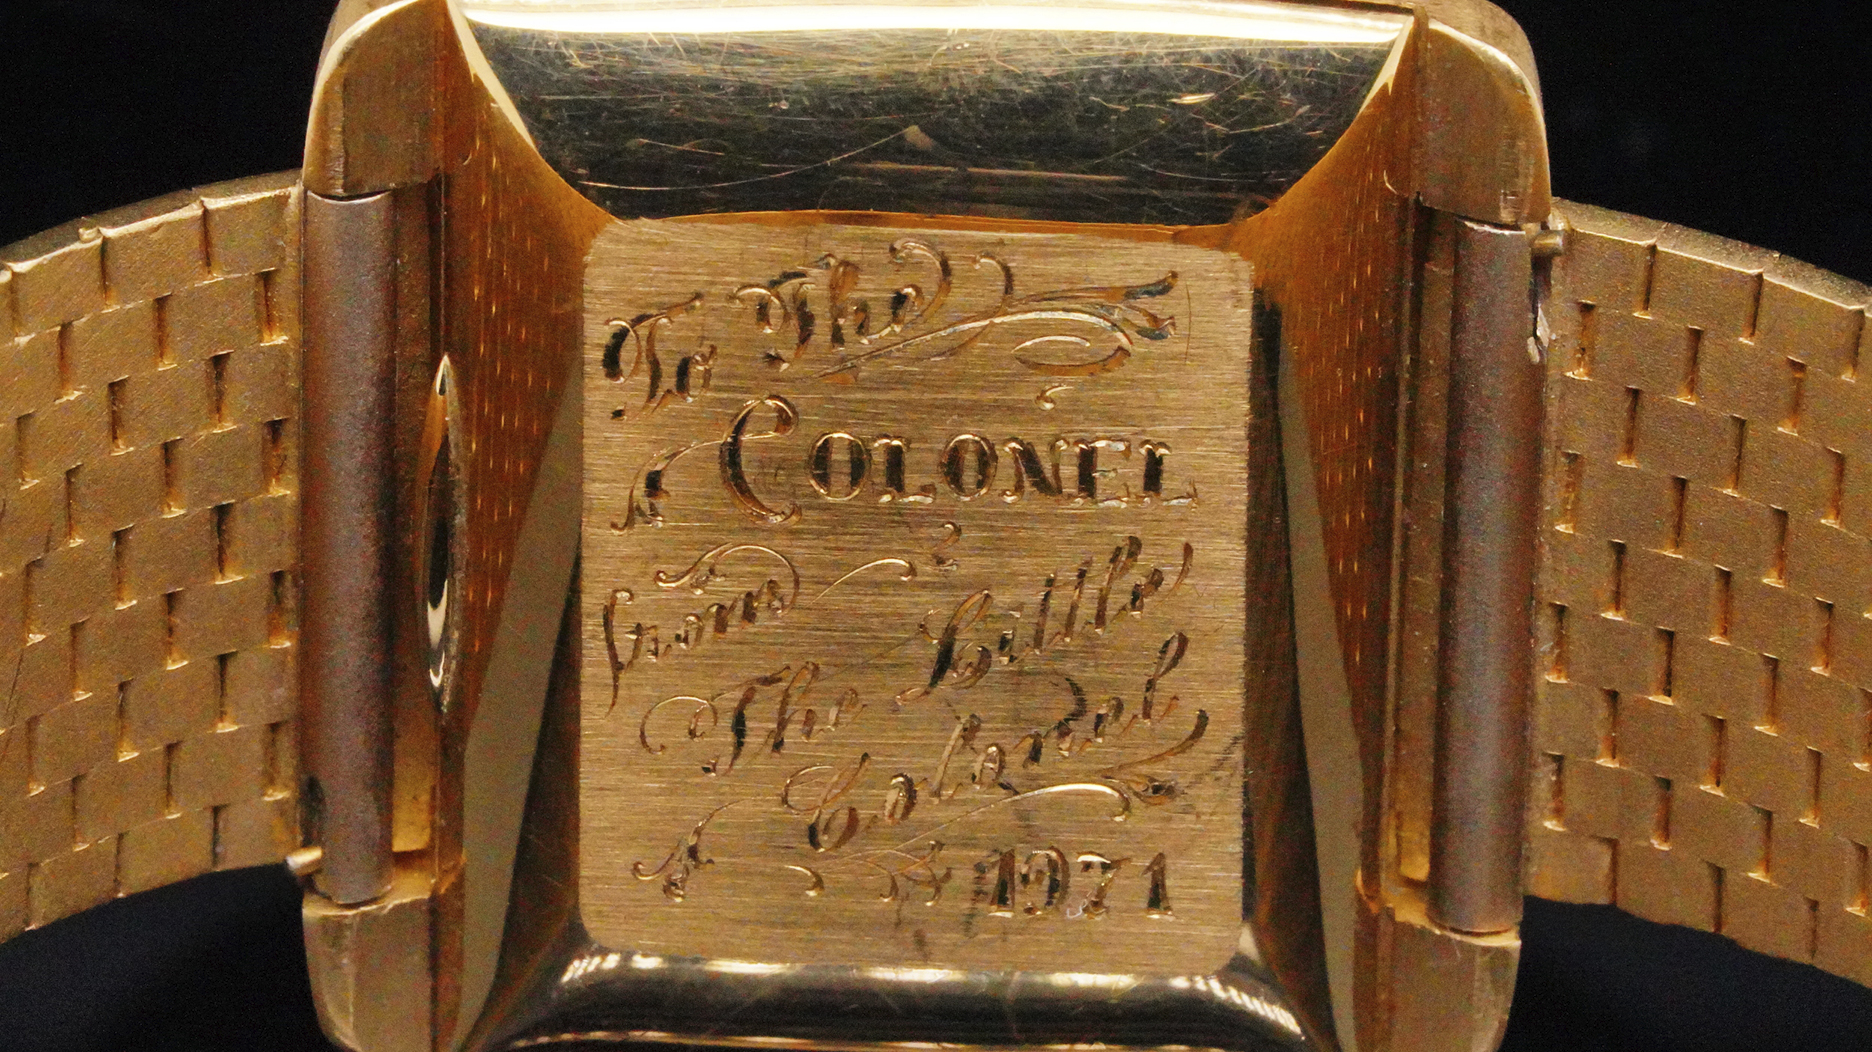 To The
COLONEL
from
The Little
Colonel
1971